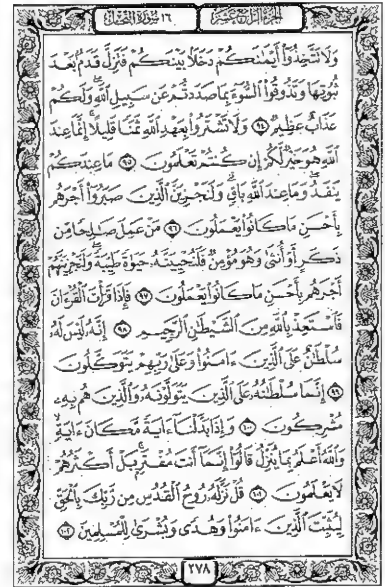 الجزء الرابع عشر ١٦ سورة النحل
وَلَا تَتَّخِذُوٓا۟ أَيْمَٰنَكُمْ دَخَلًۢا بَيْنَكُمْ فَتَزِلَّ قَدَمٌۢ بَعْدَ
ثُبُوتِهَا وَتَذُوقُوا۟ ٱلسُّوٓءَ بِمَا صَدَدتُّمْ عَن سَبِيلِ ٱللَّهِ ۖ وَلَكُمْ
عَذَابٌ عَظِيمٌ ۝٩٤ وَلَا تَشْتَرُوا۟ بِعَهْدِ ٱللَّهِ ثَمَنًا قَلِيلًا ۚ إِنَّمَا عِندَ
ٱللَّهِ هُوَ خَيْرٌ لَّكُمْ إِن كُنتُمْ تَعْلَمُونَ ۝٩٥ مَا عِندَكُمْ
يَنفَدُ ۖ وَمَا عِندَ ٱللَّهِ بَاقٍ ۗ وَلَنَجْزِيَنَّ ٱلَّذِينَ صَبَرُوٓا۟ أَجْرَهُم
بِأَحْسَنِ مَا كَانُوا۟ يَعْمَلُونَ ۝٩٦ مَنْ عَمِلَ صَٰلِحًا مِّن
ذَكَرٍ أَوْ أُنثَىٰ وَهُوَ مُؤْمِنٌ فَلَنُحْيِيَنَّهُۥ حَيَوٰةً طَيِّبَةً ۖ وَلَنَجْزِيَنَّهُمْ
أَجْرَهُم بِأَحْسَنِ مَا كَانُوا۟ يَعْمَلُونَ ۝٩٧ فَإِذَا قَرَأْتَ ٱلْقُرْءَانَ
فَٱسْتَعِذْ بِٱللَّهِ مِنَ ٱلشَّيْطَٰنِ ٱلرَّجِيمِ ۝٩٨ إِنَّهُۥ لَيْسَ لَهُۥ
سُلْطَٰنٌ عَلَى ٱلَّذِينَ ءَامَنُوا۟ وَعَلَىٰ رَبِّهِمْ يَتَوَكَّلُونَ
۝٩٩ إِنَّمَا سُلْطَٰنُهُۥ عَلَى ٱلَّذِينَ يَتَوَلَّوْنَهُۥ وَٱلَّذِينَ هُم بِهِۦ
مُشْرِكُونَ ۝١٠٠ وَإِذَا بَدَّلْنَآ ءَايَةً مَّكَانَ ءَايَةٍ ۙ
وَٱللَّهُ أَعْلَمُ بِمَا يُنَزِّلُ قَالُوٓا۟ إِنَّمَآ أَنتَ مُفْتَرٍۭ ۚ بَلْ أَكْثَرُهُمْ
لَا يَعْلَمُونَ ۝١٠١ قُلْ نَزَّلَهُۥ رُوحُ ٱلْقُدُسِ مِن رَّبِّكَ بِٱلْحَقِّ
لِيُثَبِّتَ ٱلَّذِينَ ءَامَنُوا۟ وَهُدًى وَبُشْرَىٰ لِلْمُسْلِمِينَ ۝١٠٢
٢٧٨